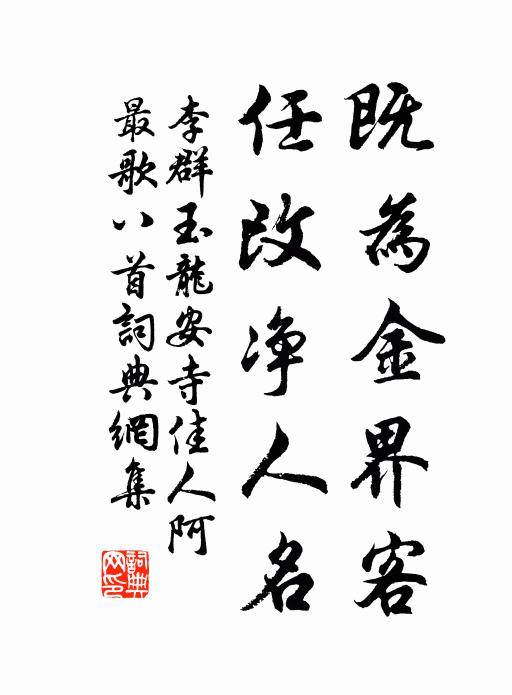 既為金界客
任改净人名
李群玉龍安寺佳人阿
最歌八首詞典網集
詞典
网印